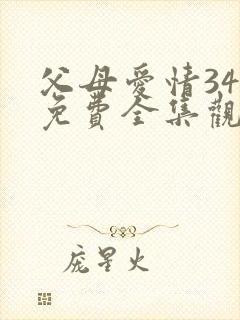 父母愛情34
免費全集觀
庞星火